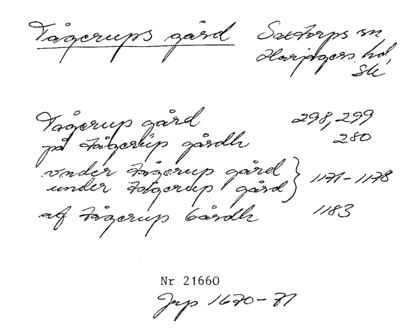 Tågerups gård Saxtorps sn,
Harjagers hd,
Sk
Tågerup gård 298,299
på Tågerup gårdh 280
vnder Tågerup gård
under Tågerup gård } 1171-1178
af Tågerup Gårdh 1183
Nr 21660
Jrp 1670-71